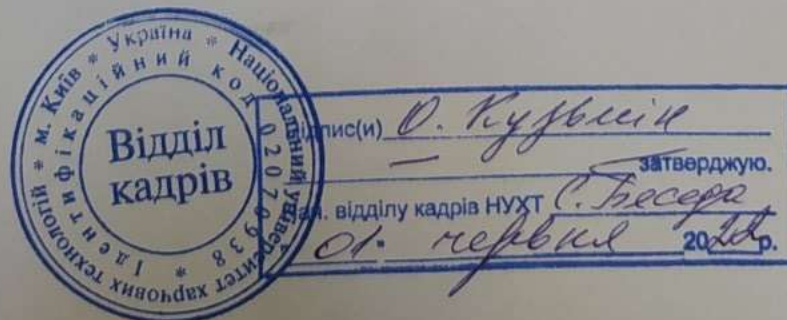 * Україна * Національний університет харчових технологій * м. Київ
* Ідентифікаційний код 02070938
Відділ
кадрів
підпис(и) О. Кузьмін
затверджую.
Зав. відділу кадрів НУХТ С. Беседа
"01" червня 20 р.